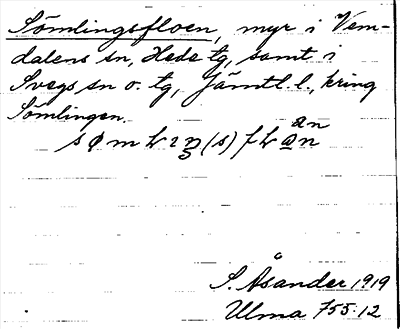 Sömlingsfloen, myr i Vem-
dalens sn, Hede tg, samt i
Svegs sn o. tg, Jämtl. l., kring
Sömlingen.
an
(s)
S. Åsander 1919
Ulma 755:12